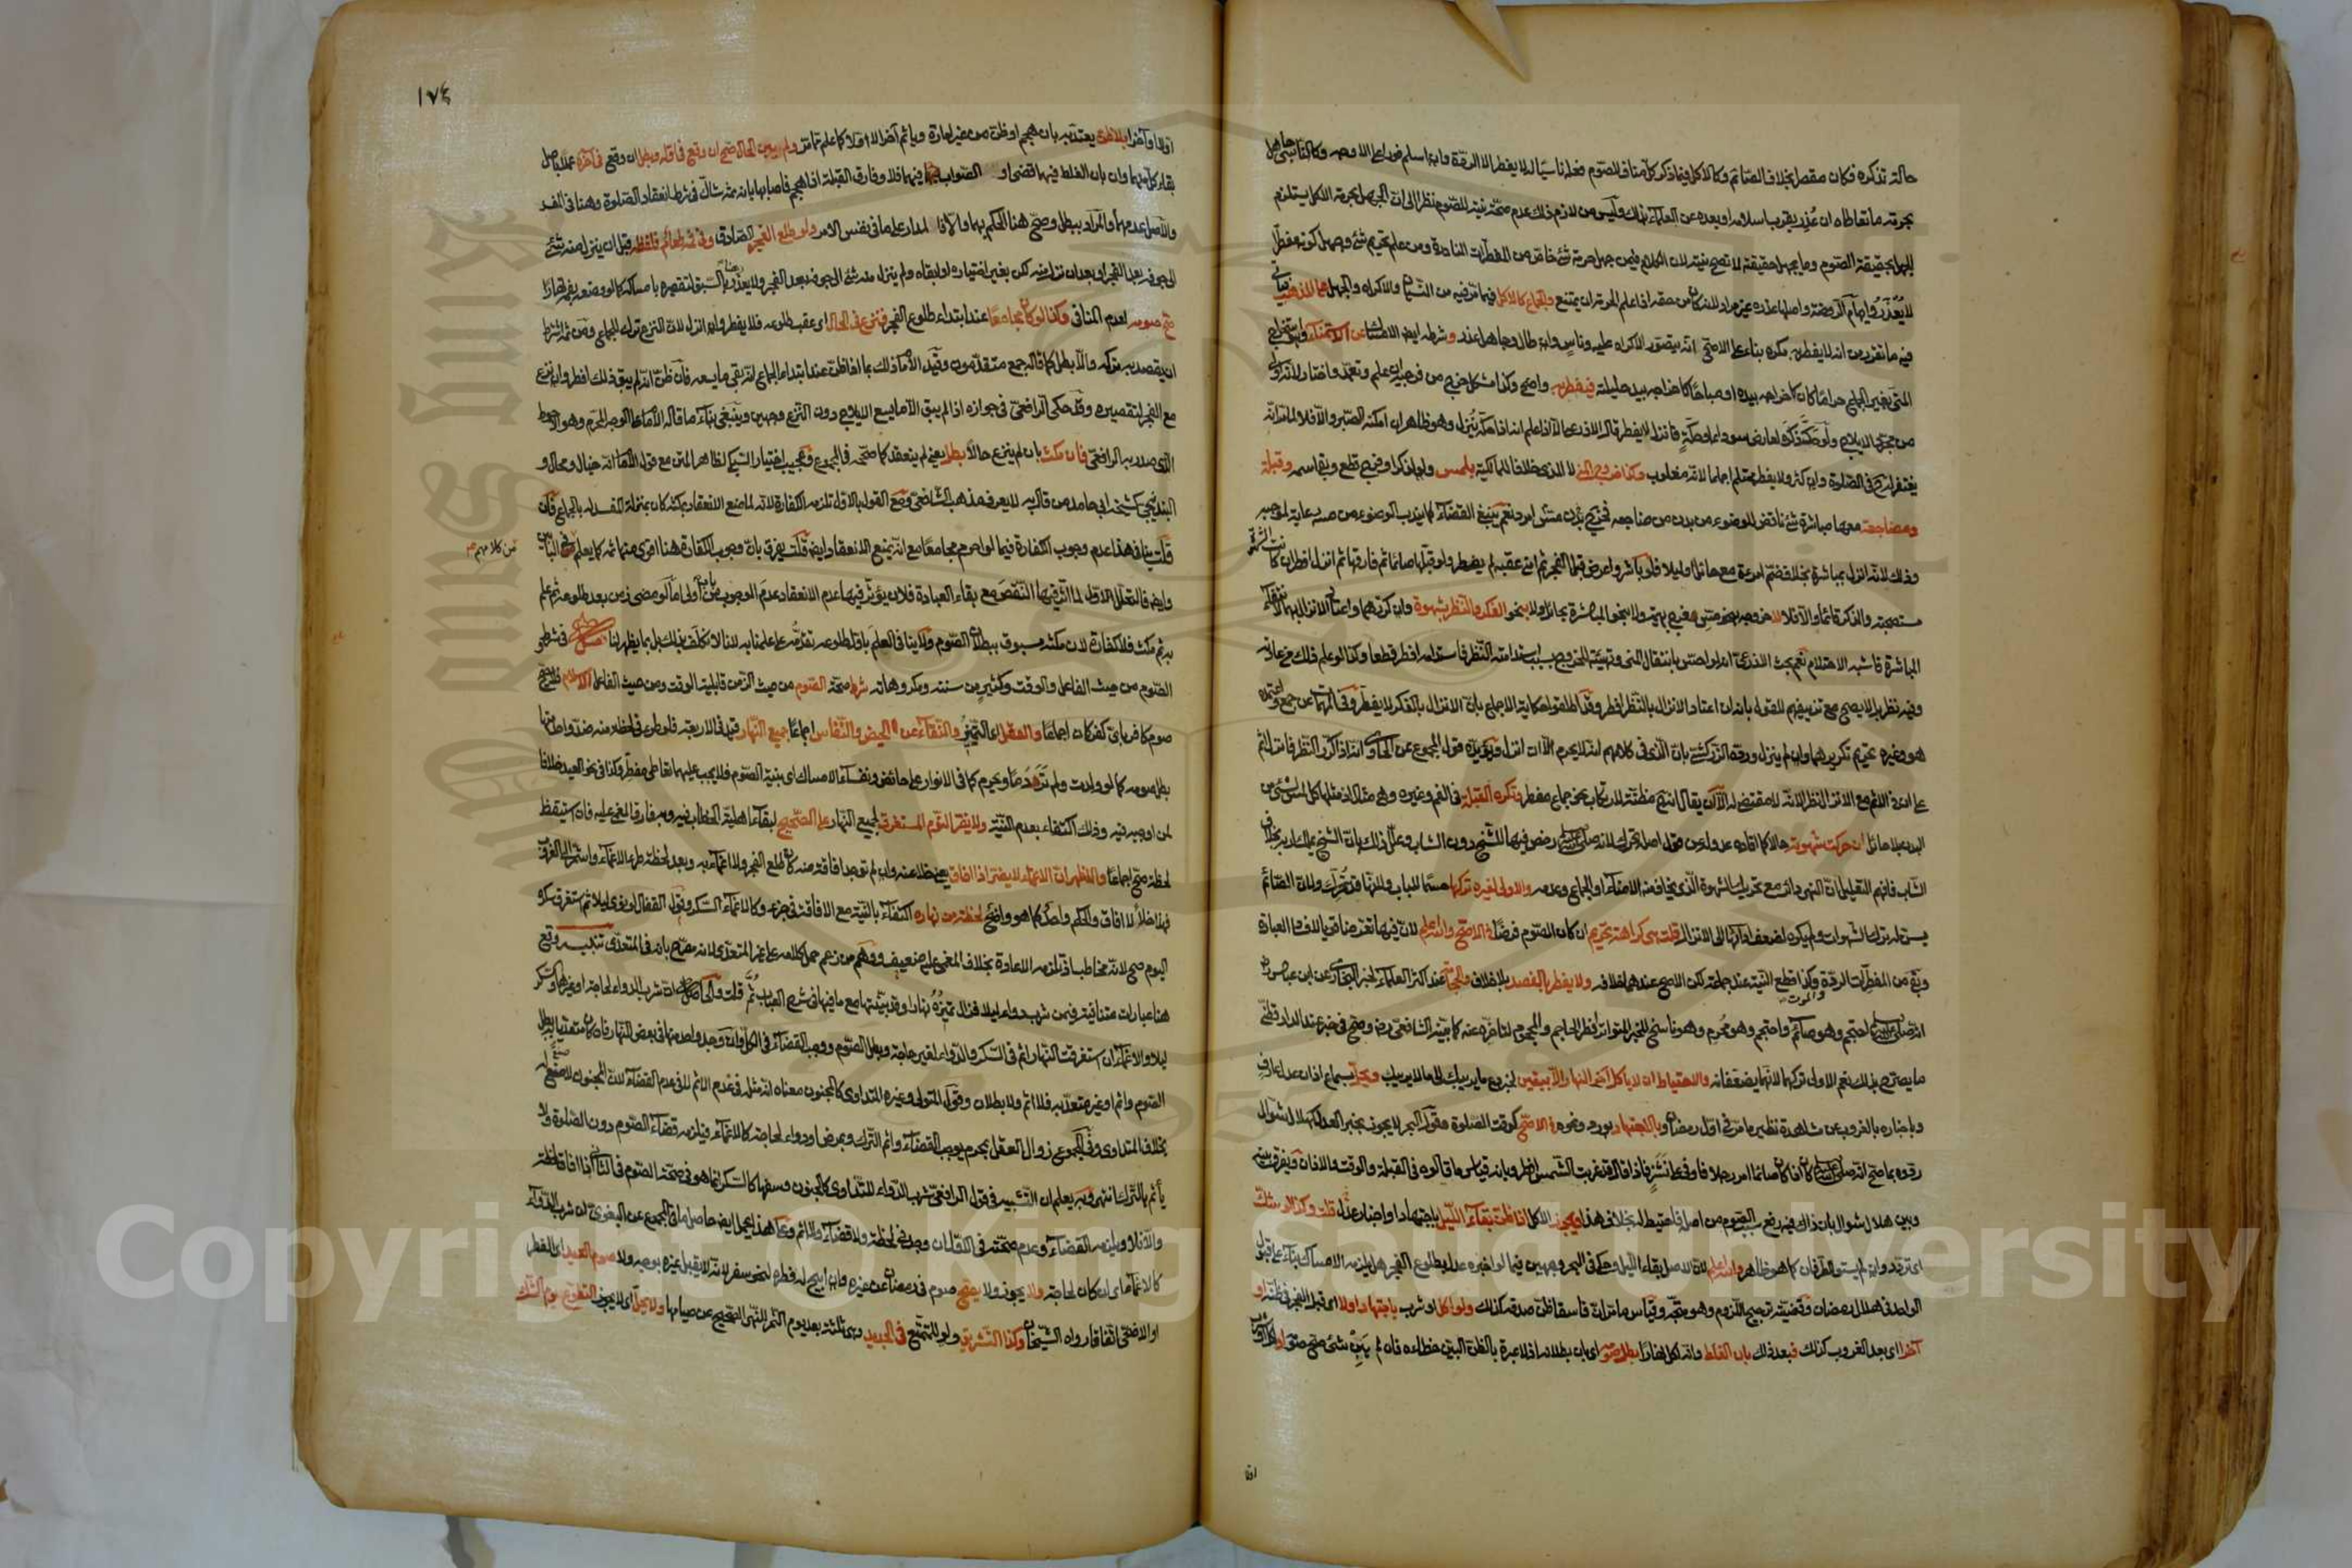 حالة تذكره فكان مقصرا بخلاف الصائم وكالاكل فيما ذكر كل مناف للصوم فعله ناسيا له لا يفطر الا الردة وان اسلم فورا على الاوجه وكالناسي جاهل
بحرمة ما تعاطاه ان عذر بقرب اسلامه او بعده عن العلماء بذلك وليس من لازم ذلك عدم صحة نيته للصوم نظرا الى ان الجهل بحرمة الاكل يستلزم
الجهل بحقيقة الصوم وما يجهل حقيقته لا تصح نيته لان الكلام فيمن جهل حرمة شئ خاص من المفطرات النادرة ومن علم تحريم شئ وجهل كونه مفطرا
لا يعذر وايهام الروضة واصلها عذره غير مراد لانه كان من حقه اذا علم الحرمة ان يمتنع والجماع كالاكل فيما مر فيه من النسيان والاكراه والجهل على المذهب فيأتي
فيه ما تقرر من انه لا يفطر به مكره بناء على الاصح انه يتصور الاكراه عليه وناس وان طال وجاهل عذر وشرطه ايض الامساك عن الاستمناء وهو استخراج
المني بغير الجماع حراما كان كاخراجه بيده او مباحا كاخراجه بيد حليلته فيفطر به واضح وكذا مشكل خرج من فرجيه ان علم وتعمد واختار لانه اولى
من مجرد الايلاج ولو حك ذكره لعارض سوداء او حكة فانزل لم يفطر قال الاذرعي الا اذا علم انه اذا حكه ينزل وهو ظاهر ان امكنه الصبر والا فلا لما مر انه
يغتفر له ح في الصلوة وان كثر ولا يفطر محتلم اجماعا لانه مغلوب وكذا خروج المني لا المذي خلافا للمالكية بلمس ولو لذكر او فرج قطع وبقي اسمه وقبلة
ومضاجعة معها مباشرة شئ ناقض للوضوء من بدن من ضاجعه فخرج بدن امرد نعم ينبغي القضاء كما يندب الوضوء من مسه رعاية لموجبه
وذلك لانه انزل بمباشرة بخلاف ضم امرأة مع حائل او ليلا فلو باشر واعرض قبل الفجر ثم امنى عقبه لم يفطر ولو قبلها صائما ثم فارقها ثم انزل افطر ان كانت الشهوة
مستصحبة والذكر قائما والا فلا لا خروجه بنحو مس فرج بهيمة ولا بنحو المباشرة بحائل ولا بنحو الفكر والنظر بشهوة وان كررهما واعتاد الانزال بهما لانتفاء
المباشرة فاشبه الاحتلام نعم بحث الاذرعي انه لو احس بانتقال المني وتهيئه للخروج بسبب استدامته النظر فاستدامه افطر قطعا وكذا لو علم ذلك من عادته
وفيه نظر بل لا يصح مع تزييفهم للقول بانه ان اعتاد الانزال بالنظر افطر وقد اطلقوا حكاية الاجماع بان الانزال بالفكر لا يفطر وفي المهمات عن جمع واعتمده
هو وغيره يحرم تكريرهما وان لم ينزل ورده الزركشي بان الذي في كلامهم انه لا يحرم الا ان انزل ويؤيده قول المجموع عن الحاوي انه اذا كرر النظر فانزل اثم
على ان ذا الاثم مع الانزال نظرا لانه لا مقتضي له الا ان يقال انه ح مظنة لارتكاب نحو جماع مفطر وتكره القبلة في الفم وغيره وهي مثال اذ مثلها كل لمس لشئ من
البدن بلا حائل لمن حركت شهوته حالا كما افاده عدوله عن قول اصله تحرك لانه صلى الله عليه وسلم رخص فيها للشيخ دون الشاب وعلل ذلك بان الشيخ يملك اربه بخلاف
الشاب فافهم التعليل ان النهي دائر مع تحريك الشهوة الذي يخاف منه الامناء او الجماع وعدمه والاولى لغيره تركها حسما للباب ولانها قد تحرك ولان الصائم
يسن له ترك الشهوات ولم يكره لضعف ادائها الى الانزال قلت هي كراهة تحريم ان كان الصوم فرضا في الاصح والله اعلم لان فيها تعرضا قويا لافساد العبادة
وبقي من المفطرات الردة والموت وكذا قطع النية عند جماعة لكن الاصح عندهما خلافه ولا يفطر بالفصد بلا خلاف والحجامة عند اكثر العلماء لخبر البخاري عن ابن عباس رض
انه صلى الله عليه وسلم احتجم وهو صائم واحتجم وهو محرم وهو ناسخ للخبر المتواتر افطر الحاجم والمحجوم لتاخره عنه كما بينه الشافعي رض وصح في خبر عند الدارقطني
ما يصرح بذلك نعم الاولى تركها لانها يضعفانه والاحتياط ان لا ياكل آخر النهار الا بيقين لخبر دع ما يريبك الى ما لا يريبك ويحل بسماع اذان عدل عارف
وباخباره بالغروب عن مشاهدة نظير ما مر في اول رمضان وبالاجتهاد بورد ونحوه في الاصح كوقت الصلوة فقول البحر لا يجوز بخبر العدل كهلال شوال
ردوه بما صح انه صلى الله عليه وسلم كان اذا كان صائما امر رجلا فاوفى على نشز فاذا قال قد غربت الشمس افطر وبانه قياس ما قالوه في القبلة والوقت والاذان ويفرق بينه
وبين هلال شوال بان ذاك فيه رفع سبب الصوم من اصله فاحتيط له بخلاف هذا ويجوز الاكل اذا ظن بقاء الليل باجتهاد او اخبار عدل قلت وكذا لو شك
اي تردد وان لم يستو الطرفان كما هو ظاهر والله اعلم لان الاصل بقاء الليل وحكى في البحر وجهين فيما لو اخبره عدل بطلوع الفجر هل يلزمه الامساك بناء على قبول
الواحد في هلال رمضان وقضيته ترجيح اللزوم وهو متجه وقياس ما مر ان فاسقا ظن صدقه كذلك ولو اكل او شرب باجتهاد اولا اي قبل الفجر في ظنه او
آخرا اي بعد الغروب كذلك فبعد ذلك بان الغلط وانه اكل نهارا بطل صومه اي بان بطلانه اذ لا عبرة بالظن البين خطاءه فان لم يبن شئ صح صومه او اكل او شرب
اولا
١٧٤
اولا او آخرا بلا ظن يعتد به بان هجم او ظن من غير امارة وياثم آخرا لا اولا كما علم مما مر ولم يبن الحال صح ان وقع في اوله وبطل ان وقع في آخره عملا باصل
بقاء كل منهما وان بان الغلط فيهما قضى او الصواب فيهما فلا وفارق القبلة اذا هجم فاصابها بانه ثم شاك في شرط انعقاد الصلوة وهنا في المفسد
والاصل عدمه والمراد ببطل وصح هنا الحكم بهما والا فالمدار على ما في نفس الامر ولو طلع الفجر الصادق وفي فمه طعام فلفظه قبل ان ينزل منه شئ
الى جوفه بعد الفجر او بعد ان نزل منه لكن بغير اختياره او ابقاه ولم ينزل منه شئ الى جوفه بعد الفجر ولا يعذر هنا بالسبق لتقصيره بامساكه كما لو وضعه بفمه نهارا
صح صومه لعدم المنافي وكذا لو كان مجامعا عند ابتداء طلوع الفجر فنزع في الحال اي عقب طلوعه فلا يفطر وان انزل لان النزع ترك للجماع ومن ثم اشترط
ان يقصد به تركه والا بطل كما قاله جمع متقدمون وقيد الامام ذلك بما اذا ظن عند ابتداء الجماع انه بقي ما يسعه فان ظن انه لم يبق ذلك افطر وان نزع
مع الفجر لتقصيره وقد حكى الرافعي في جوازه اذا لم يبق الا ما يسع الايلاج دون النزع وجهين وينبغي بناء ما قاله الامام على الوجه المحرم وهو الاحوط
الذي صدر به الرافعي فان مكث بان لم ينزع حالا بطل يعني لم ينعقد كما صححه في المجموع وعجيب اختيار السبكي لظاهر المتن مع قول الامام انه خيال ومحال و
البندنيجي كشيخه ابي حامد من قال به لا يعرف مذهب الشافعي ومع القول بالاول تلزمه الكفارة لانه لما منع الانعقاد بمكثه كان بمنزلة المفسد له بالجماع فان
قلت ينافي هذا عدم وجوب الكفارة فيما لو احرم مجامعا مع انه يمنع الانعقاد ايض قلت يفرق بان وجوب الكفارة هنا اقوى منها ثم كما يعلم من كلامهم في البابين
وايض فالتحلل الاول لما اثر فيها النقص مع بقاء العبادة فلان يؤثر فيها عدم الانعقاد عدم الوجوب من باب اولى اما لو مضى زمن بعد طلوعه ثم علم
به ثم مكث فلا كفارة لان مكثه مسبوق ببطلان الصوم ولا ينافي العلم باول طلوعه تقدمه على علمنا به لاننا لا نكلف بذلك بل بما يظهر لنا فصل في شروط
الصوم من حيث الفاعل والوقت وكثير من سننه ومكروهاته شرط صحة الصوم من حيث الزمن قابلية الوقت ومن حيث الفاعل الاسلام فلا يصح
صوم كافر باي كفر كان اجماعا والعقل اي التمييز والنقاء عن الحيض والنفاس اجماعا جميع النهار قيد في الاربعة فلو طرء في لحظة منه ضد واحد منها
بطل صومه كما لو ولدت ولم تر دما ويحرم كما في الانوار على حائض ونفساء الامساك اي بنية الصوم فلا يجب عليهما تعاطي مفطر وكذا في نحو العيد خلافا
لمن اوجبه فيه وذلك اكتفاء بعدم النية ولا يضر النوم المستغرق لجميع النهار على الصحيح لبقاء اهلية الخطاب فيه وبه فارق المغمى عليه فان استيقظ
لحظة صح اجماعا والاظهر ان الاغماء لا يضر اذا افاق يعني خلا عنه وان لم توجد افاقة منه كان طلع الفجر ولا اغماء به وبعد لحظة طرء الاغماء واستمر الى الغروب
فهذا خلا لا افاق والحكم واحد كما هو واضح لحظة من نهاره اكتفاء بالنية مع الافاقة في جزء وكالاغماء السكر وقول القفال لو نوى ليلا ثم استغرق سكره
اليوم صح لانه مخاطب اذ تلزمه الاعادة بخلاف المغمى عليه ضعيف ووهم من زعم حمل كلامه على غير المتعدي لانه مصرح بانه في المتعدي تنبيه وقع
هنا عبارات متنافية فيمن شرب دواء ليلا فزال تمييزه نهارا وقد بينتها مع ما فيها في شرح العباب ثم قلت والحاصل ان شرب الدواء لحاجة او غيرها والسكر
ليلا والاغماء ان استغرقت النهار اثم في السكر والدواء لغير حاجة وبطل الصوم ووجب القضاء في الكل وان وجد واحد منها في بعض النهار فان كان متعديا به بطل
الصوم واثم او غير متعد به فلا اثم ولا بطلان وقول المتولي وغيره المتداوي كالمجنون معناه انه مثله في عدم الاثم لا في عدم القضاء لان المجنون لا صنع له
بخلاف المتداوي وفي المجموع زوال العقل بمحرم يوجب القضاء واثم الترك وبمرض او دواء لحاجة كالاغماء فيلزمه قضاء الصوم دون الصلوة ولا
يأثم بالترك انتهى وبه يعلم ان التشبيه في قول الرافعي شرب الدواء للتداوي كالجنون وسفها كالسكر انما هو في صحة الصوم في الثاني اذا افاق لحظة
والا فلا ويلزمه القضاء وعدم صحته في الاول ان وجد في لحظة ولا قضاء ولا اثم وعلى هذا يحمل ايض حاصل ما في المجموع عن البغوي ان شرب الدواء
كالاغماء اي ان كان لحاجة ولا يجوز ولا يصح صوم في رمضان عن غيره وان ابيح له فطره لنحو سفر لانه لا يقبل غيره بوجه ولا صوم العيد اي الفطر
او الاضحى اتفاقا رواه الشيخان وكذا التشريق ولو للمتمتع في الجديد وهي ثلثة بعد يوم النحر للنهي الصحيح عن صيامها ولا يحل اي لا يجوز التطوع يوم الشك
من كلامهم صح
Copyright © King Saud University
King Saud University
1957